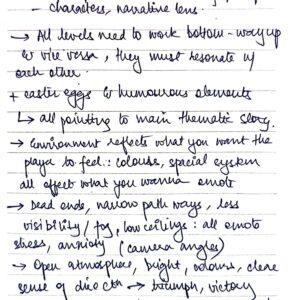 - characters, narrative lens.
→ All levels need to work bottom-way up
& vice versa, they must resonate w/
each other.
+ easter eggs & humourous elements
↳ all pointing to main thematic story.
→ Environment reflects what you want the
player to feel: colours, special system
all affect what you wanna emote
→ Dead ends, narrow path ways, less
visibility / fog, low ceilings: all emote
stress, anxiety (camera angles)
→ Open atmosphere, bright, colours, clear
sense of direcn → triumph, victory